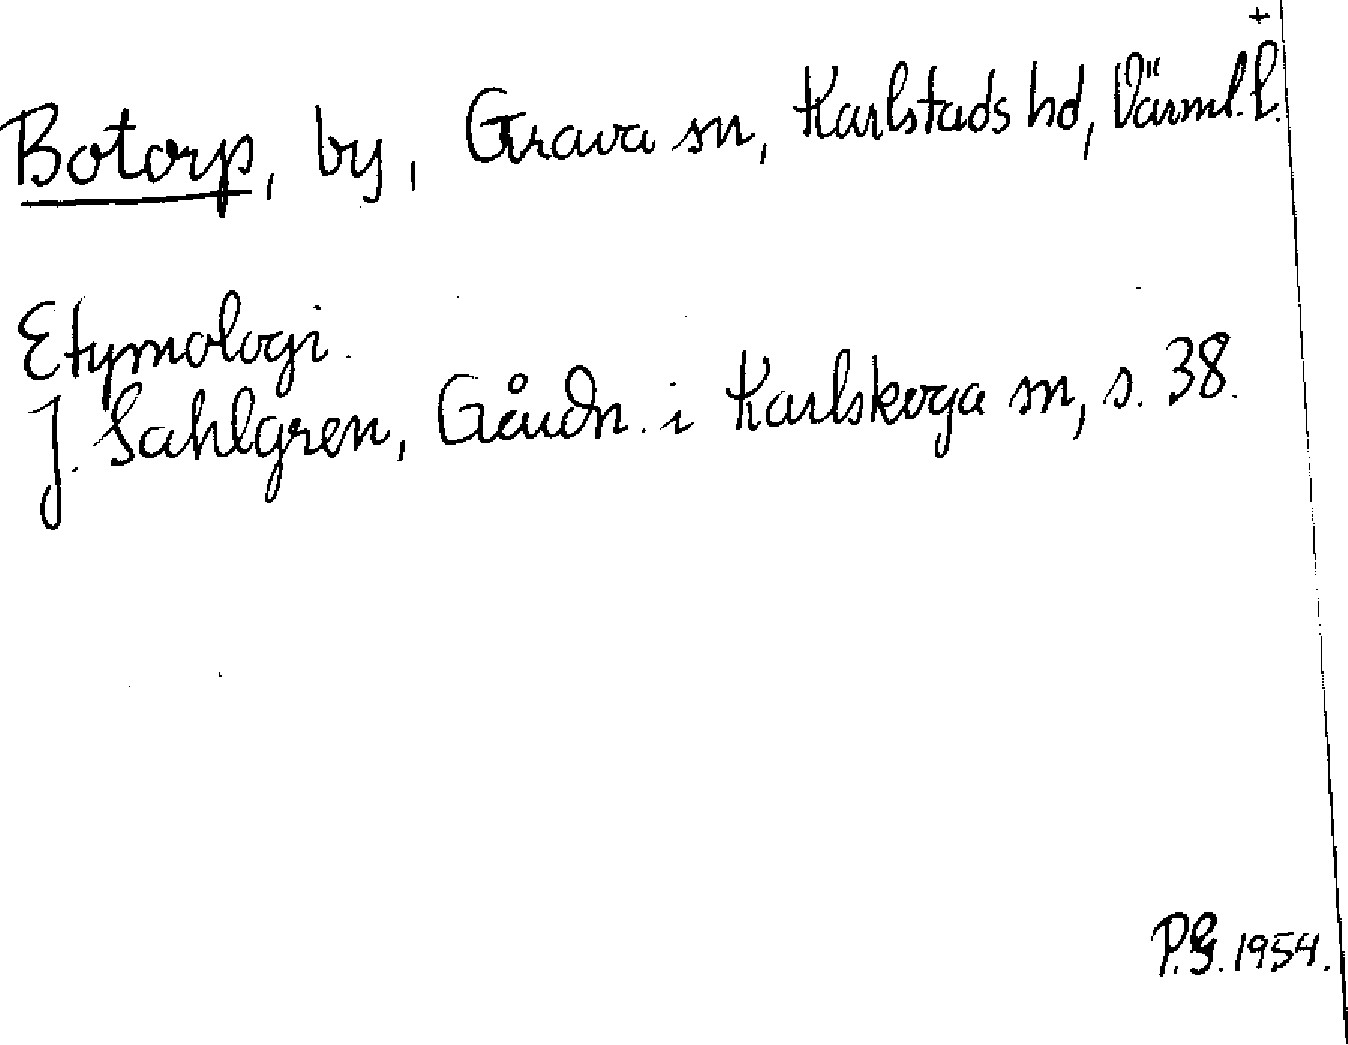 +
Botorp, by, Grava sn, Karlstads hd, Värml. l.
Etymologi.
J. Sahlgren, Gårdn. i Karlskoga sn, s. 38.
P.G. 1954.